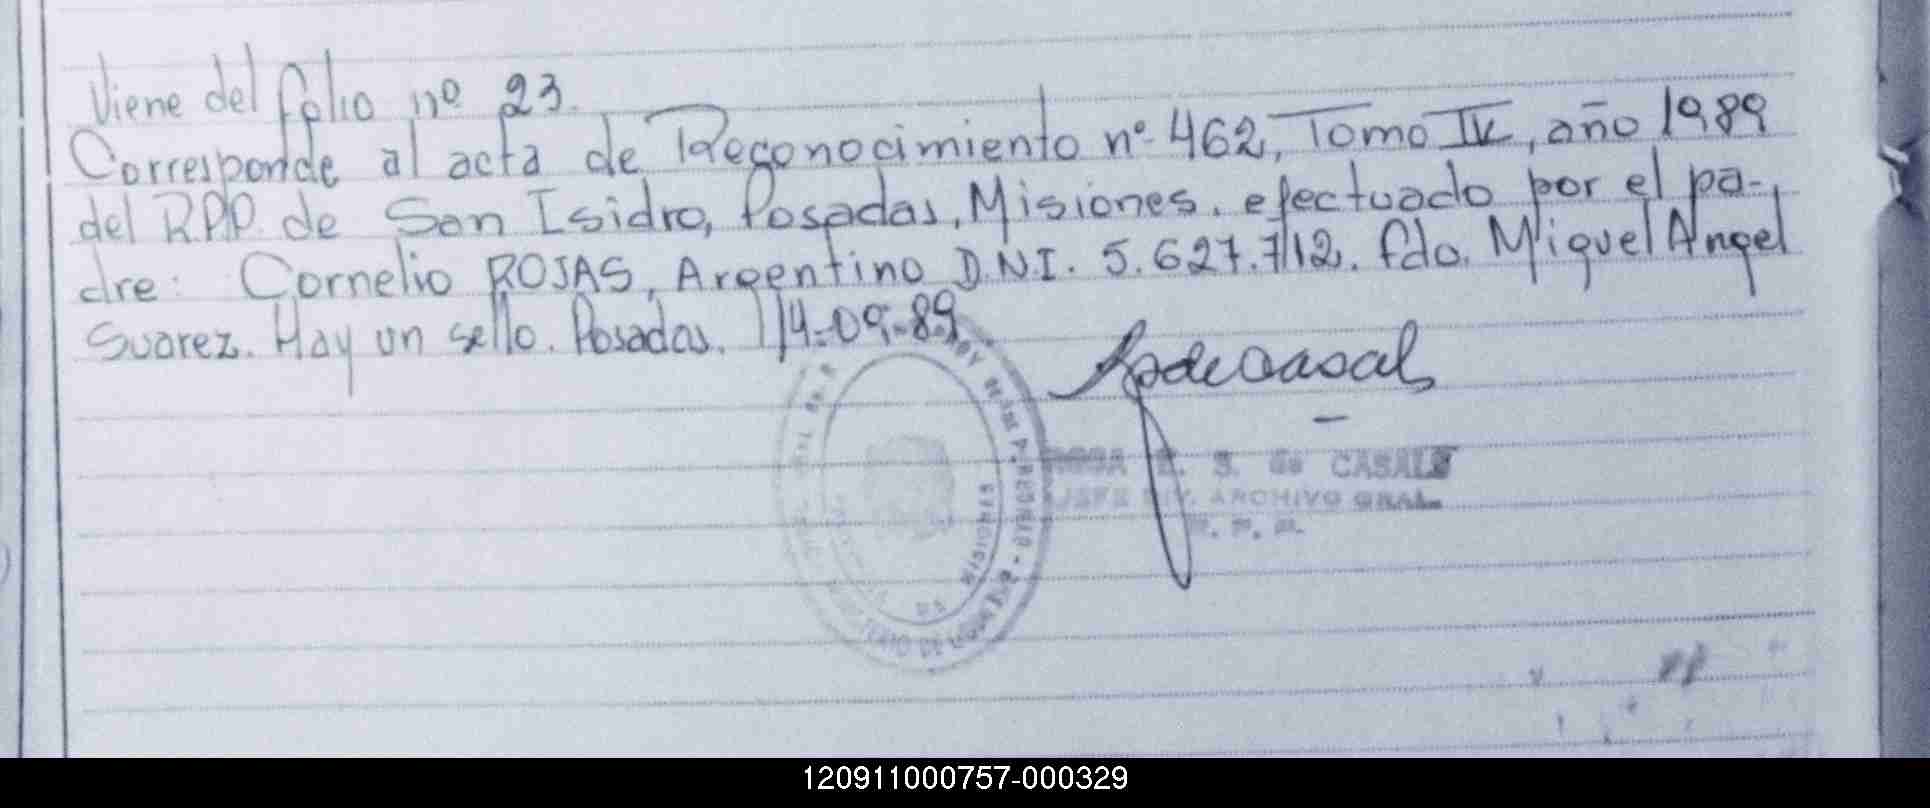 Viene del folio nº 23.
Corresponde al acta de Reconocimiento nº 462, Tomo IV, año 1989
del RPP. de San Isidro, Posadas, Misiones, efectuado por el pa-
dre: Cornelio ROJAS, Argentino D.N.I. 5.627.712. fdo. Miguel Angel
Suarez. Hay un sello. Posadas, 14-09-89
S. de CASALS
JEFE DIV. ARCHIVO GRAL.
R. P. P.
MISIONES
120911000757-000329